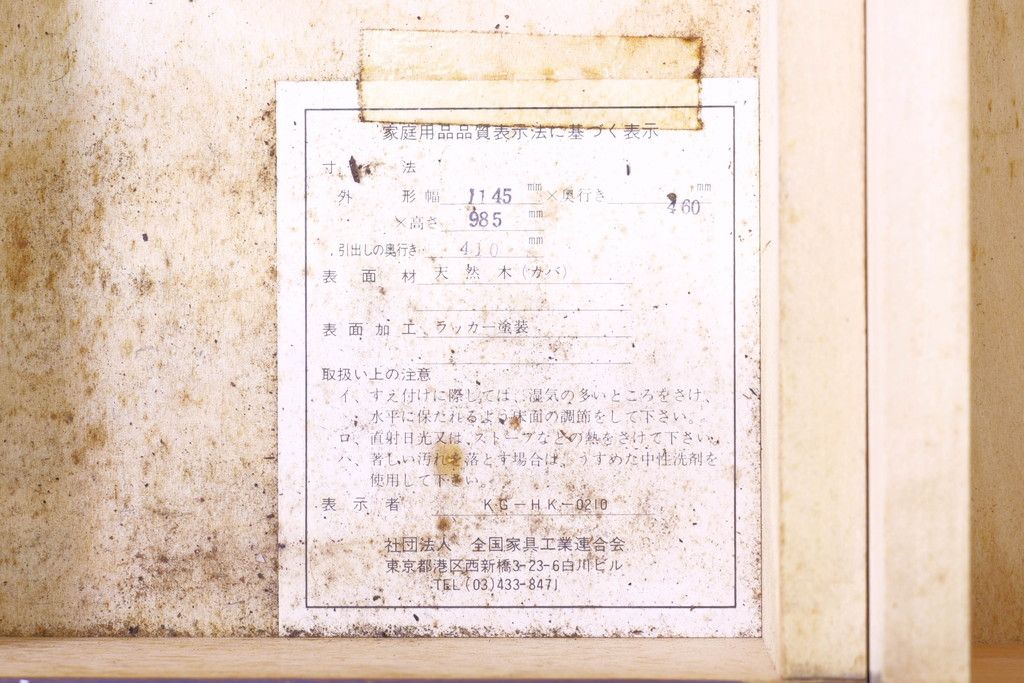 家庭用品品質表示法に基づく表示
寸法
外形幅 1145 mm ×奥行き 460 mm
×高さ 985 mm
引出しの奥行き 410 mm
表面材 天然木(カバ)
表面加工 ラッカー塗装
取扱い上の注意
イ、すえ付けに際しては、湿気の多いところをさけ、
水平に保たれるよう床面の調節をして下さい。
ロ、直射日光又は、ストーブなどの熱をさけて下さい。
ハ、著しい汚れを落とす場合は、うすめた中性洗剤を
使用して下さい。
表示者 KG-HK-0210
社団法人 全国家具工業連合会
東京都港区西新橋3-23-6白川ビル
TEL(03)433-8471